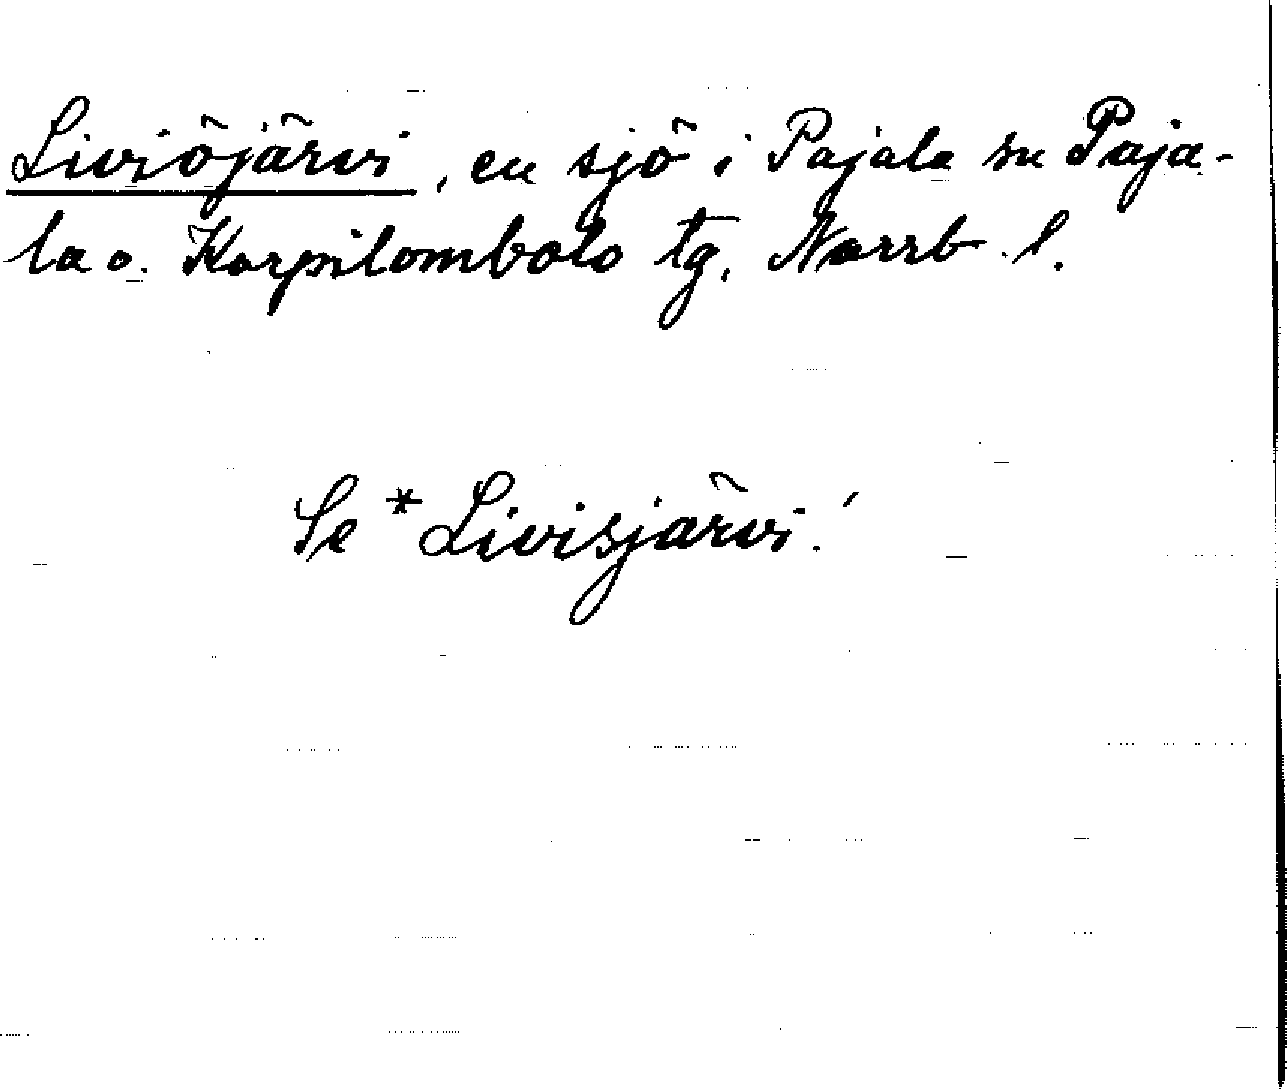 Liviöjärvi, en sjö i Pajala sn Paja-
la o. Korpilombolo tg, Norrb. l.
Se *Livisjärvi!